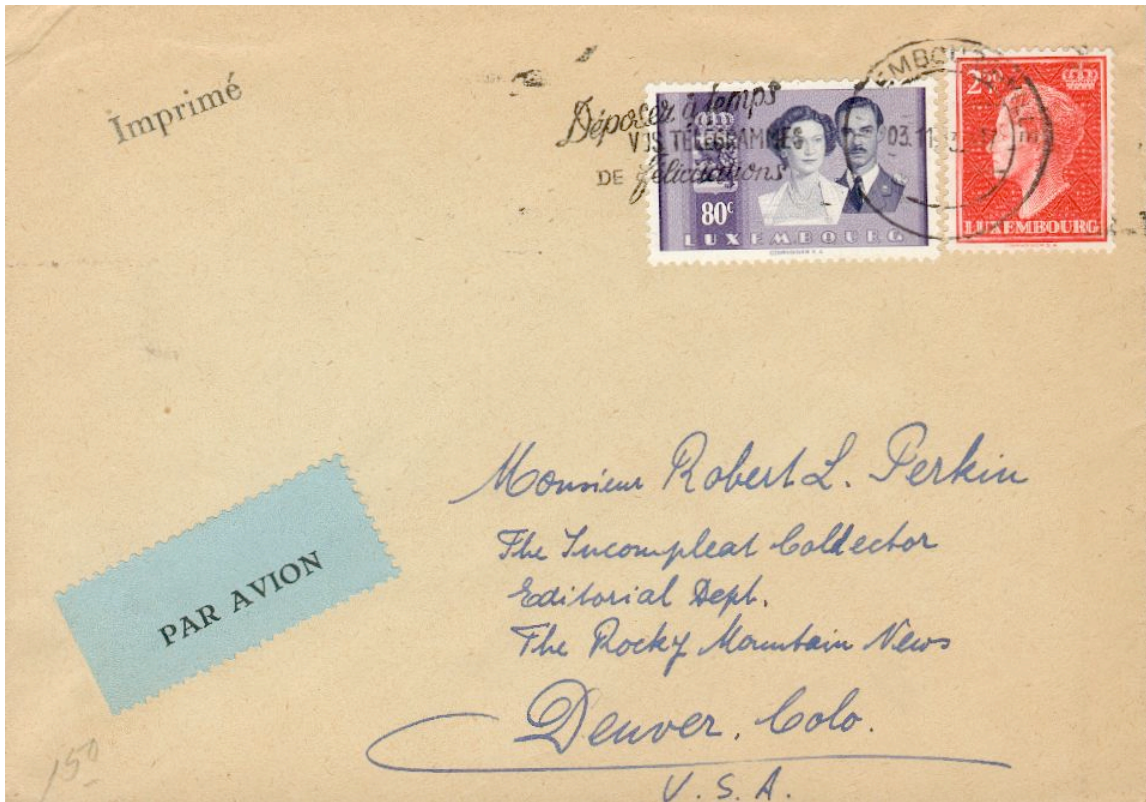 Imprimé
Déposer à temps
VOS TÉLÉGRAMMES
DE félicitations
03.11
80c
LUXEMBOURG
LUXEMBOURG
Monsieur Robert L. Perkin
The Incompleat Collector
Editorial Dept.
The Rocky Mountain News
Denver, Colo.
U.S.A.
PAR AVION
150